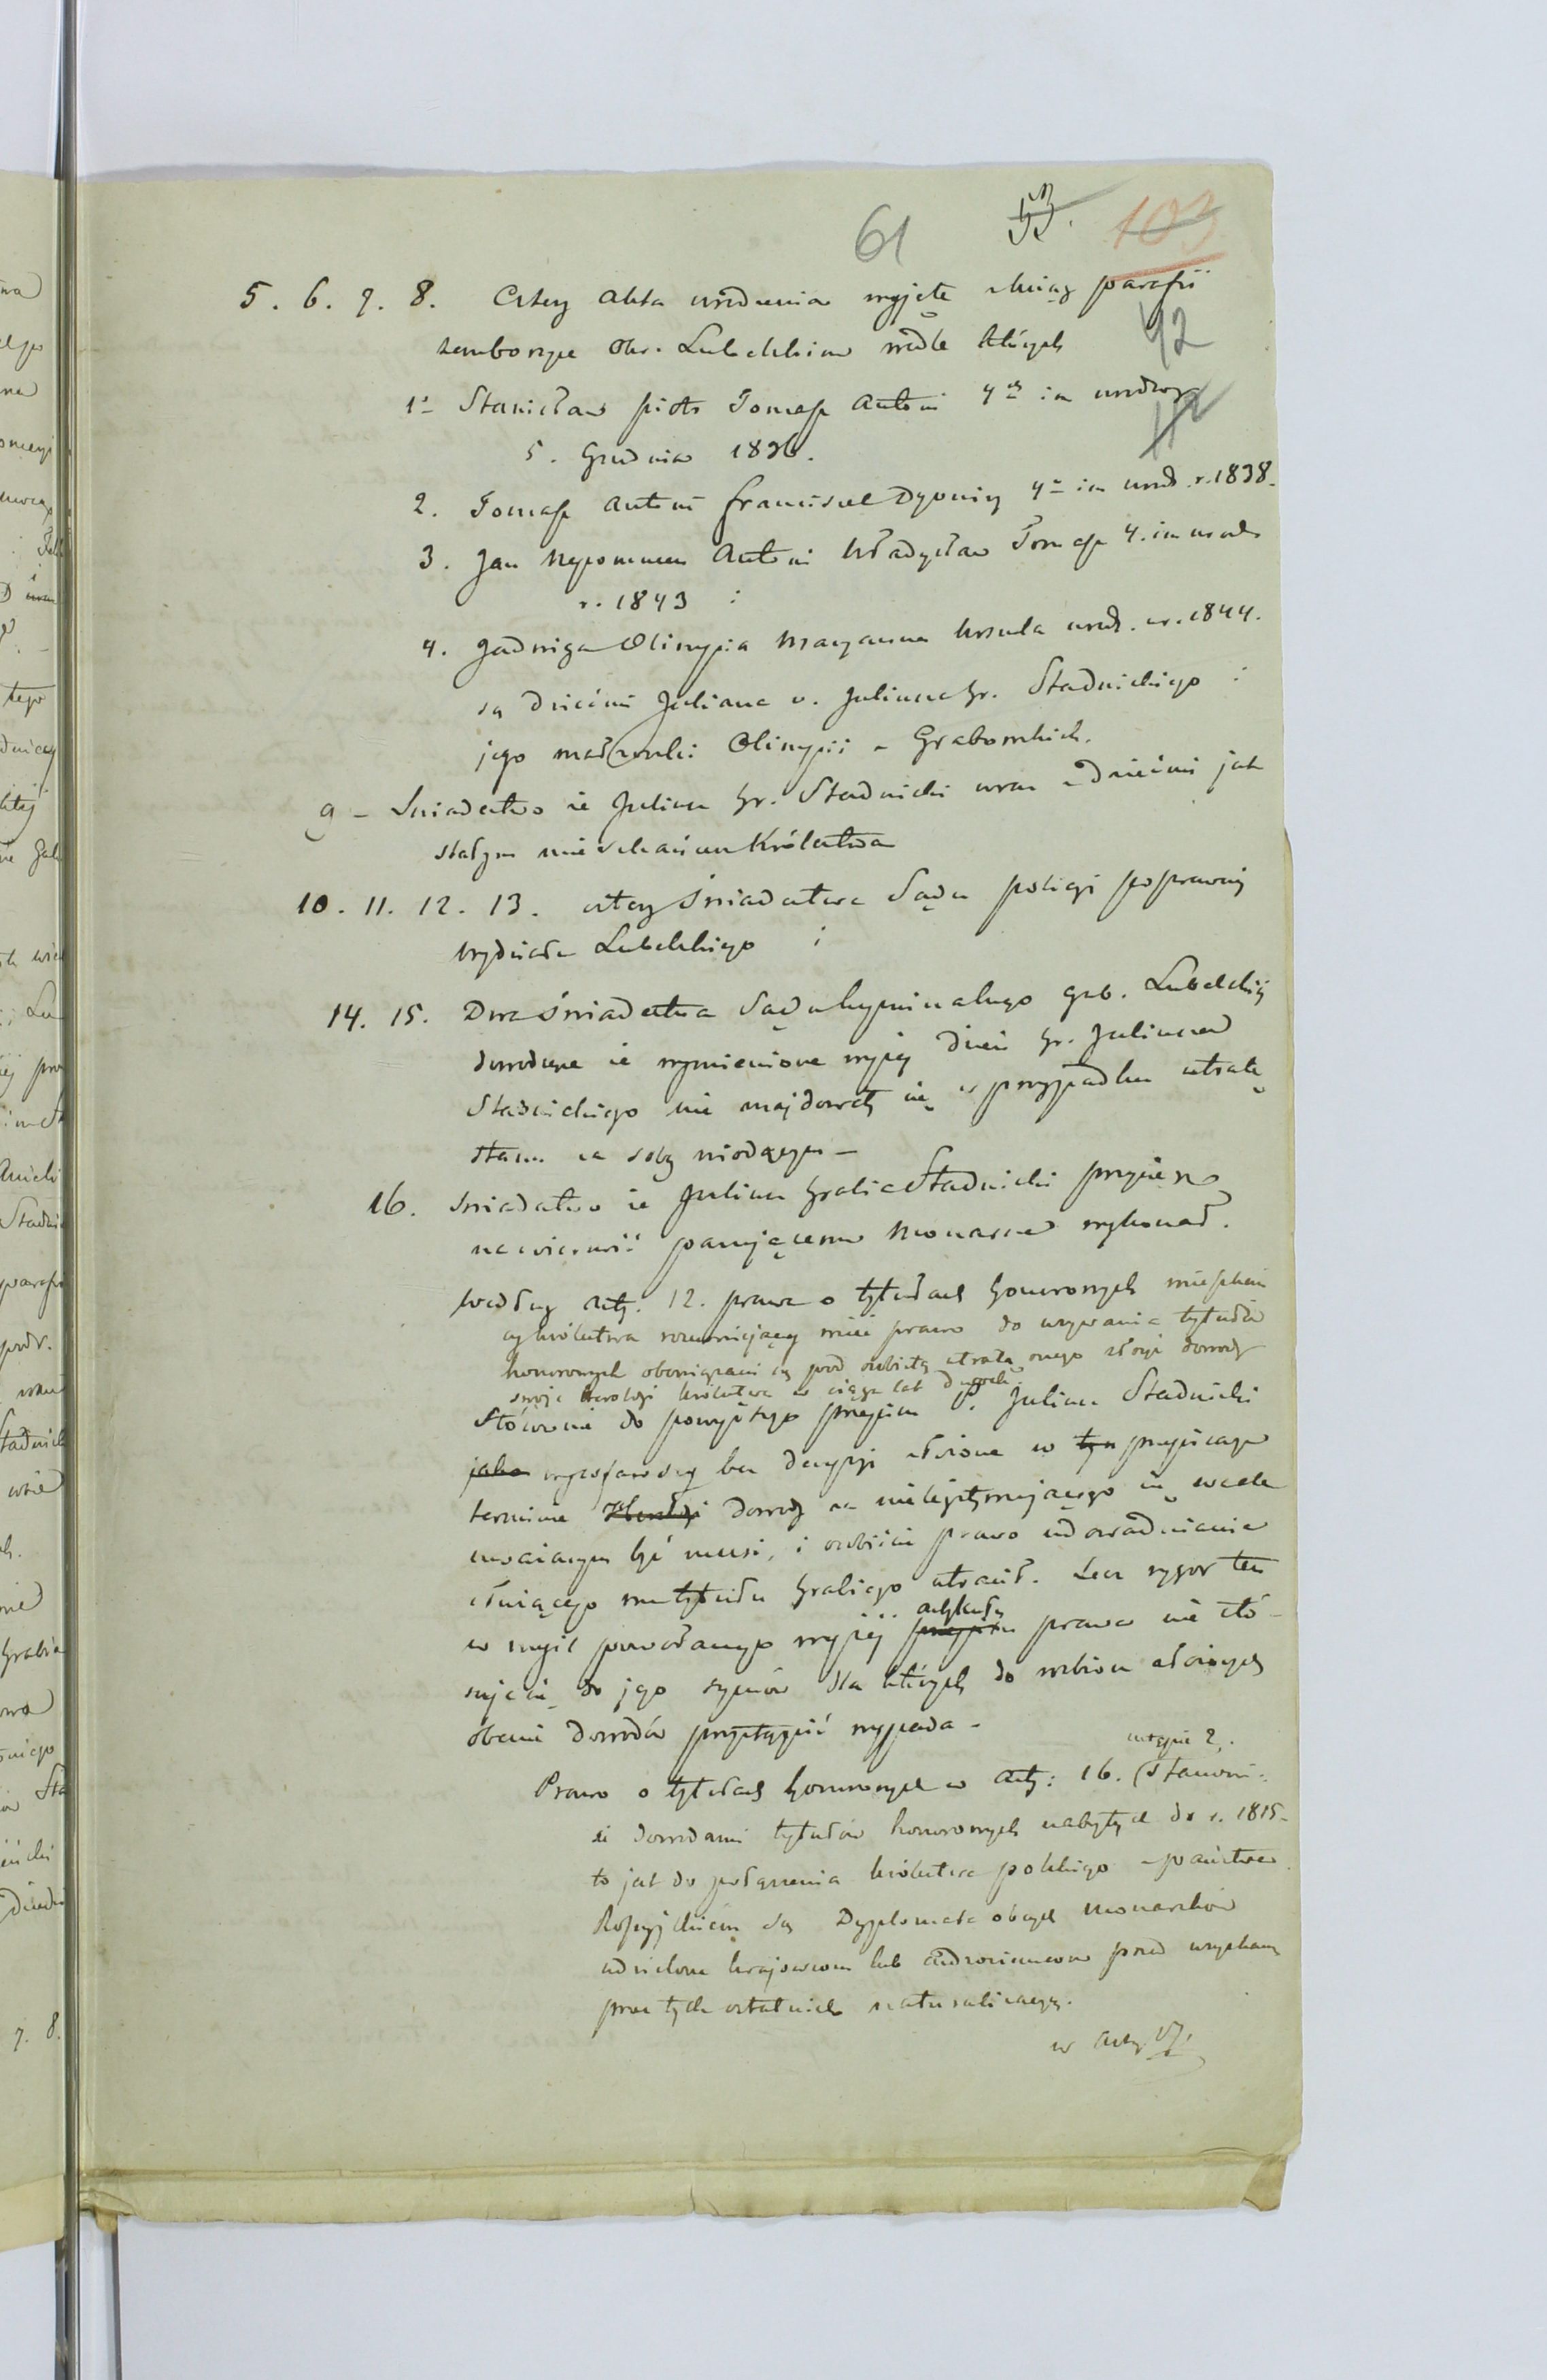 61 53. 103
5. 6. 7. 8. Cztery Akta urodzenia wyjęte z ksiąg parafii
Zemborzyce Okr. Lubelskim wedle których
92
1o Stanisław Piotr Tomasz Antoni 4ch im. urodzony
112
5. Grudnia 1836.
2. Tomasz Antoni Franciszek Dyonizy 4ch im urodz. r. 1838.
3. Jan Nepomucen Antoni Władysław Tomasz 4. im urodz
r. 1843 i
4. Jadwiga Olimpia Maryanna Urszula urodz. w r. 1844.
są dziećmi Juliana v. Juliusza hr. Stadnickiego i
jego małżonki Olimpii z Grabowskich.
9 – Świadectwo że Julian hr. Stadnicki wraz z dziećmi jest
stałym mieszkańcem Królestwa
10. 11. 12. 13. cztery świadectwa Sądu policyi poprawczej
wydziału Lubelskiego i
14. 15. Dwa świadectwa Sądu kryminalnego gub. Lubelskiej
dowodzące że wymienione wyżej dzieci hr. Juliana
Stadnickiego nie znajdowały się w przypadku utratę
stanu za sobą wiodącym –
16. Świadectwo że Julian hrabia Stadnicki przysięgę
na wierność panującemu Monarsze wykonał.
Według Arty. 12. prawa o tytułach honorowych mieszkańcy
królestwa rozumiejący mieć prawo do używania tytułów
honorowych obowiązani są pod osobistą utratą onego złożyć dowody
swoje heroldyi królestwa w ciągu lat dwóch.
Stósownie do powyższego przepisu P. Julian Stadnicki
jako wycofawszy bez decyzyi złożone w tym przepisanym
terminie dowody za nielegitymującego się wcale
uważanym być musi, i osobiście prawo udowadniania
służącego mu tytułu hrabiego utracił. Lecz rygor ten
w myśl powołanego wyżej przepisu artykułu prawa nie stó-
suje się do jego synów dla których do rozbioru złożonych
obecnie dowodów przystąpić wypada –
Prawo o tytułach honorowych w Arty: 16. ustępie 2. stanowi:
że dowodami tytułów honorowych nabytych do r. 1815.
to jest do połączenia królestwa polskiego z państwem
Rossyjskiém są Dyplomata obcych Monarchów
udzielone krajowcom lub cudzoziemcom przed uzyskaniem
przez tych ostatnich naturalizacyi.
w Arty